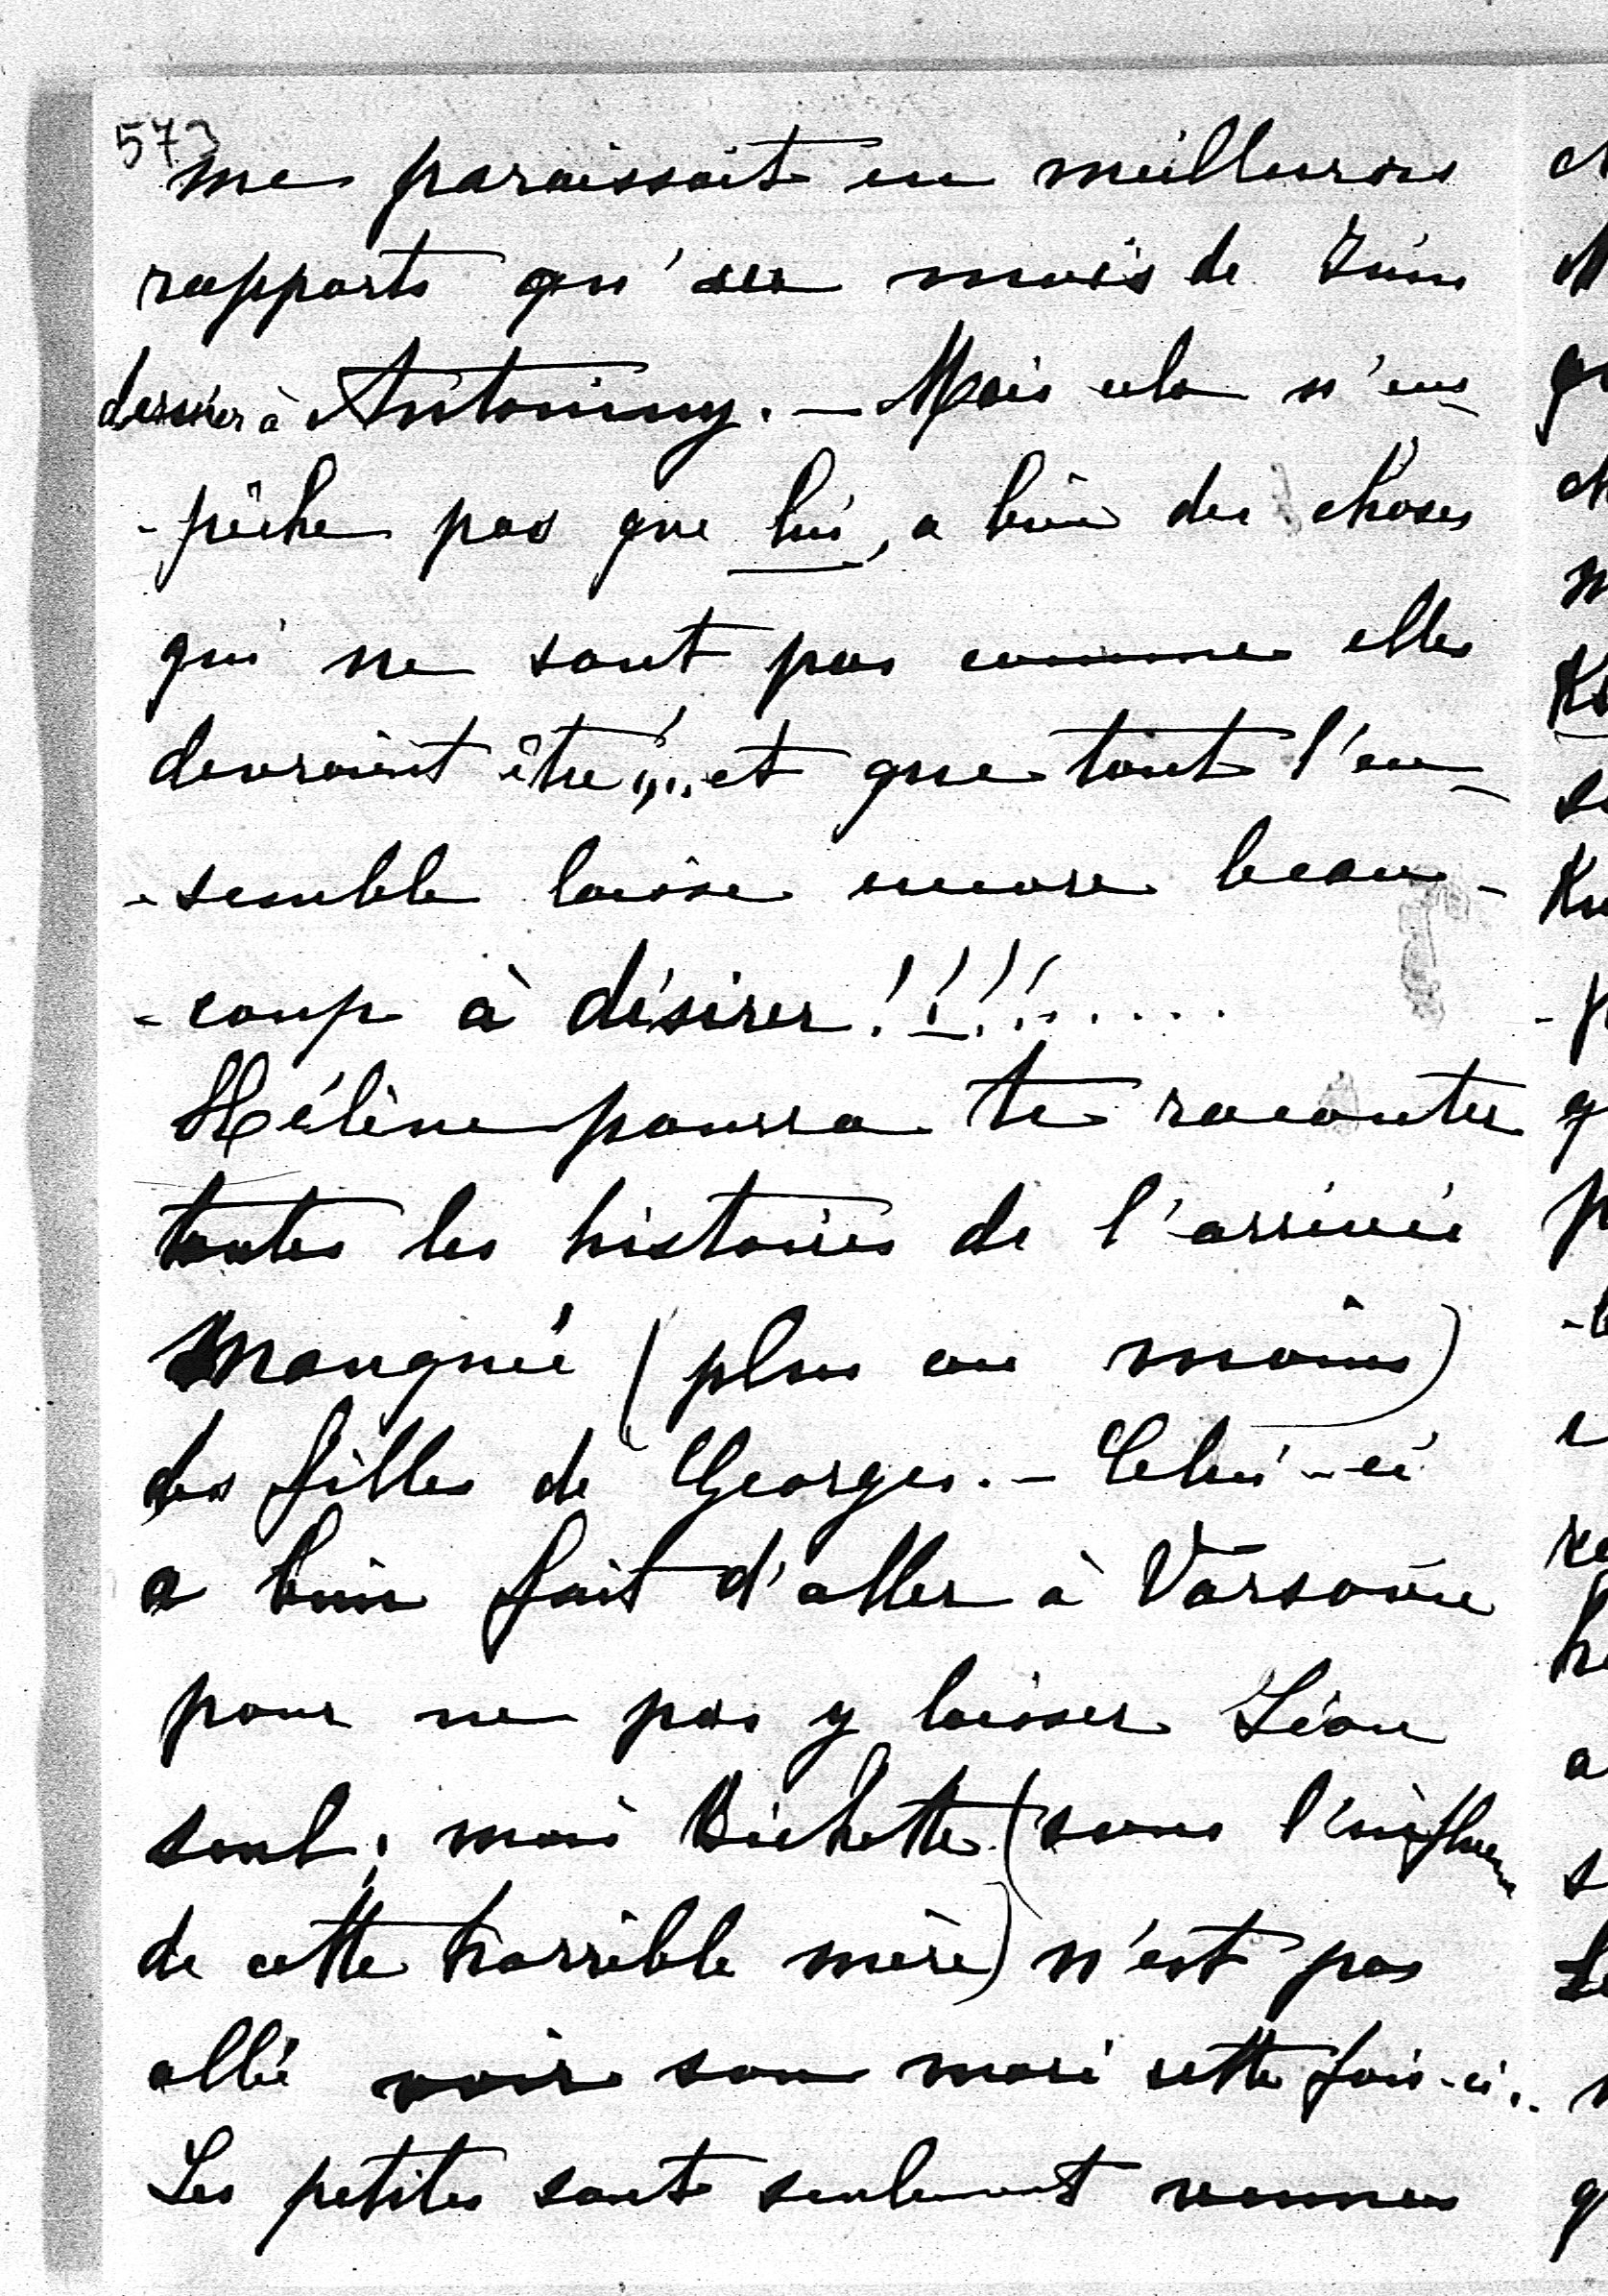 573
me paraissait en meilleurs
rapports qu'au mois de Juin
dernier à Antoniny. — Mais cela n'em-
-pêche pas que lui, a bien des choses
qui ne sont pas comme elles
devraient être!... et que tout l'en-
-semble laisse encore beau-
-coup à désirer!!!!.....
Hélène pourra te raconter
toutes les histoires de l'arrivée
manquée (plus ou moins)
des filles de Georges. — Celui-ci
a bien fait d'aller à Varsovie
pour ne pas y laisser Léon
seul; mais Bichette (sous l'influence
de cette horrible mère) n'est pas
allé voir son mari cette fois-ci.
Les petites sont seulement venues